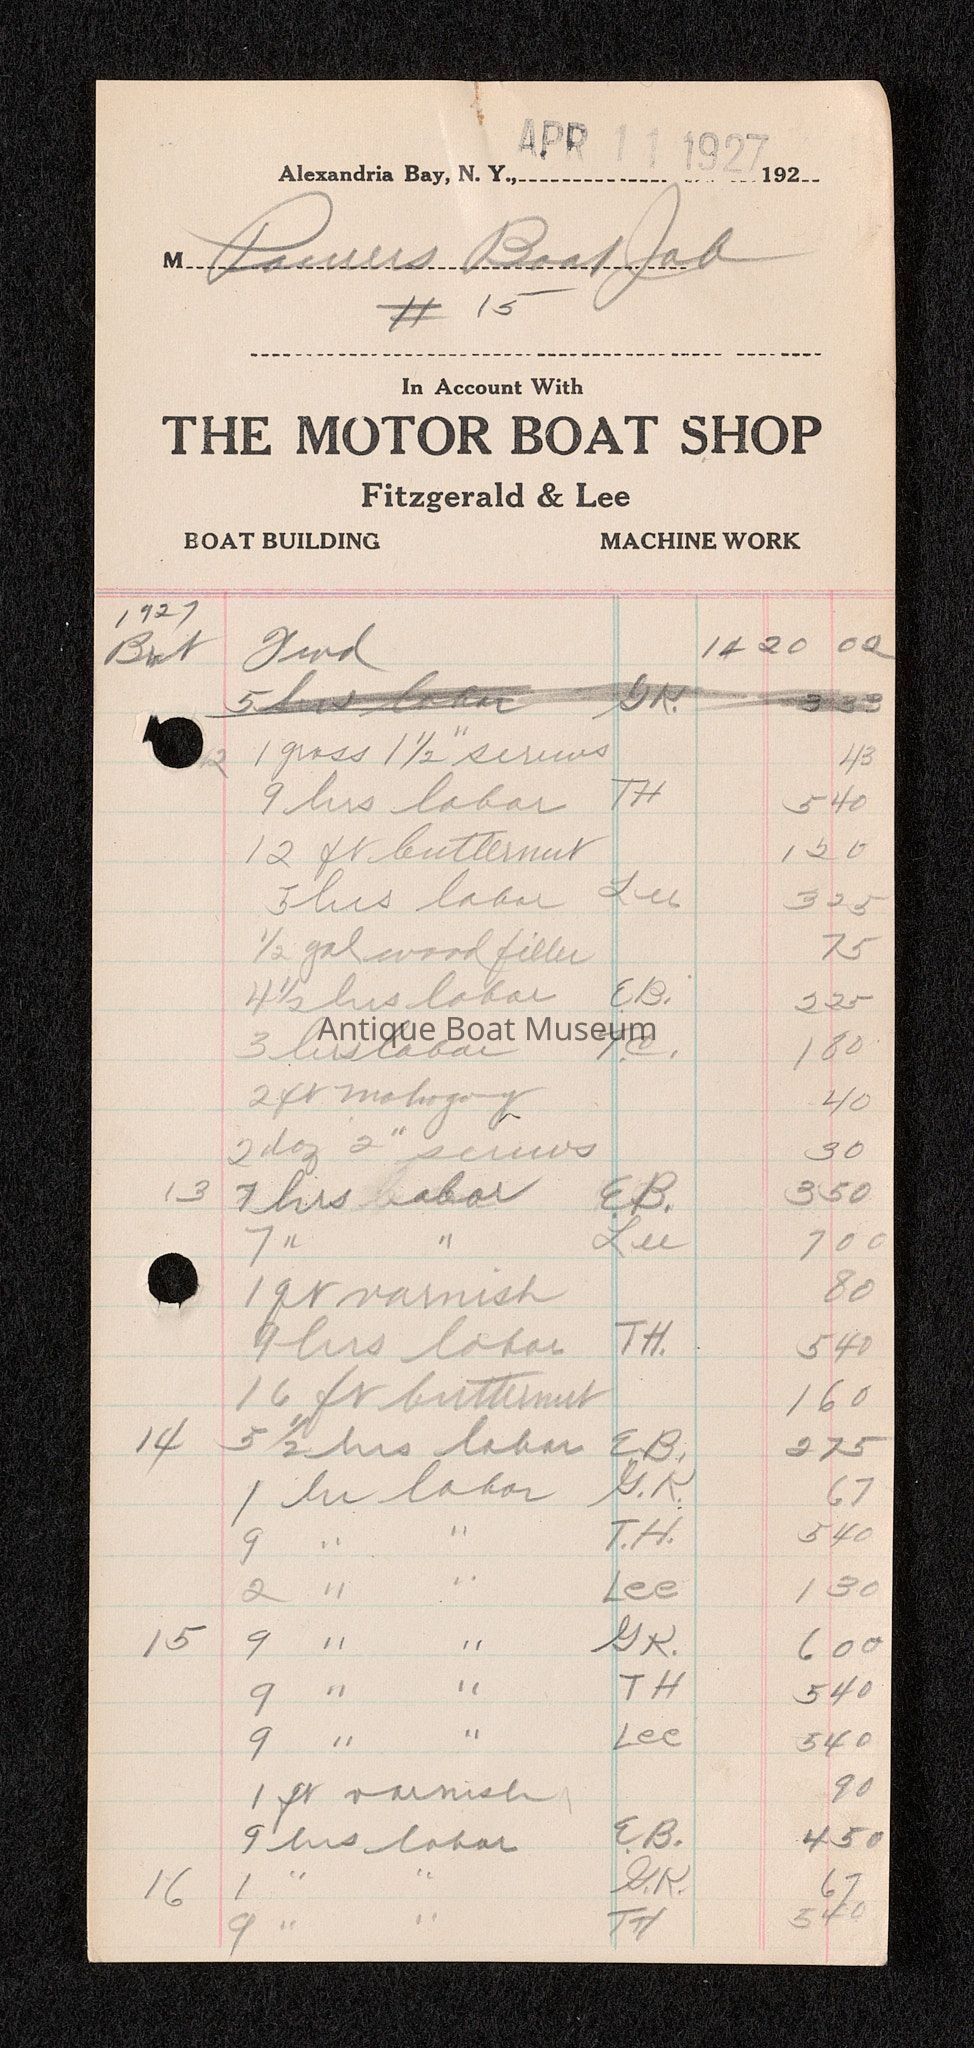 APR 11 1927
Alexandria Bay, N. Y., 192
M Powers Boat Job
# 15
In Account With
THE MOTOR BOAT SHOP
Fitzgerald & Lee
BOAT BUILDING MACHINE WORK
1927
Brt Fwd 1420 02
5 hrs labor G.K. 3 33
12 1 gross 1 1/2" screws 43
9 hrs labor TH 5 40
12 ft butternut 1 20
5 hrs labor Lee 3 25
1/2 gal wood filler 75
4 1/2 hrs labor E.B. 2 25
Antique Boat Museum
3 hrs labor 1 80
2 ft mahogony 40
2 doz 2" screws 30
13 7 hrs labor E.B. 3 50
7 " " Lee 7 00
1 qt varnish 80
9 hrs labor TH. 5 40
16 ft butternut 1 60
14 5 1/2 hrs labor E.B. 2 75
1 hr labor G.K. 67
9 " " T.H. 5 40
2 " " Lee 1 30
15 9 " " GK. 6 00
9 " " TH 5 40
9 " " Lee 5 40
1 qt varnish 90
9 hrs labor E.B. 4 50
16 1 " " G.K. 67
9 " " TH 5 40